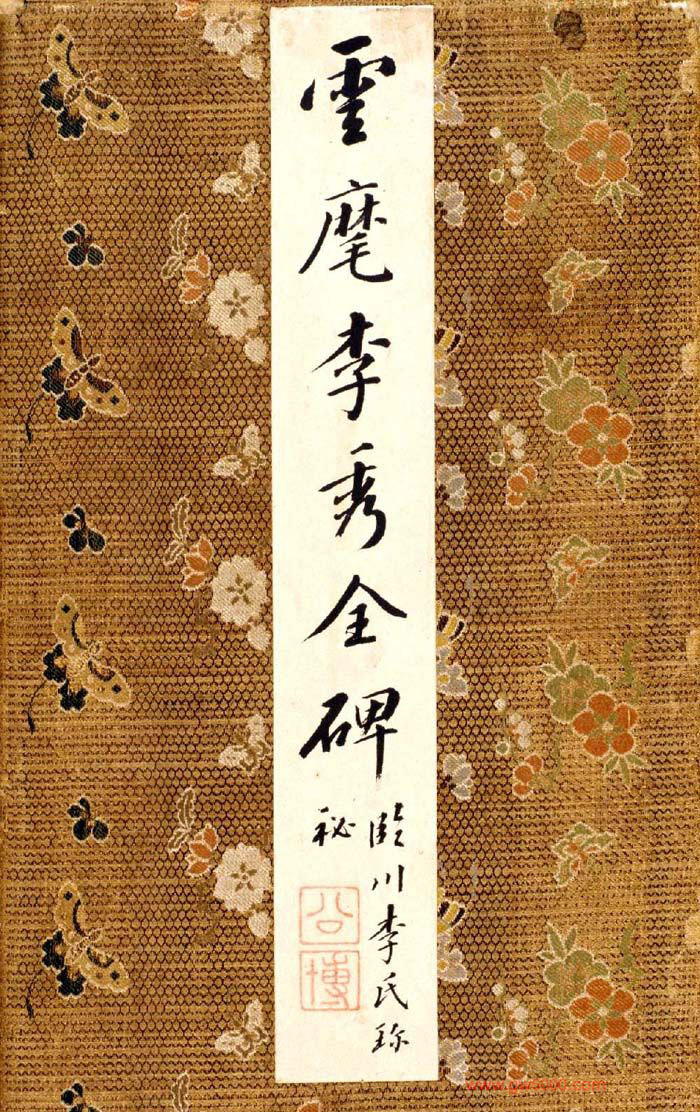 雲麾李秀全碑
臨川李氏珍
秘
公
博